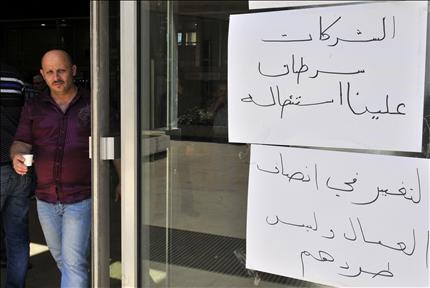 الشركات
سرطان
علينا استئصاله
لتغير في انصاف
العمال وليس
طردهم